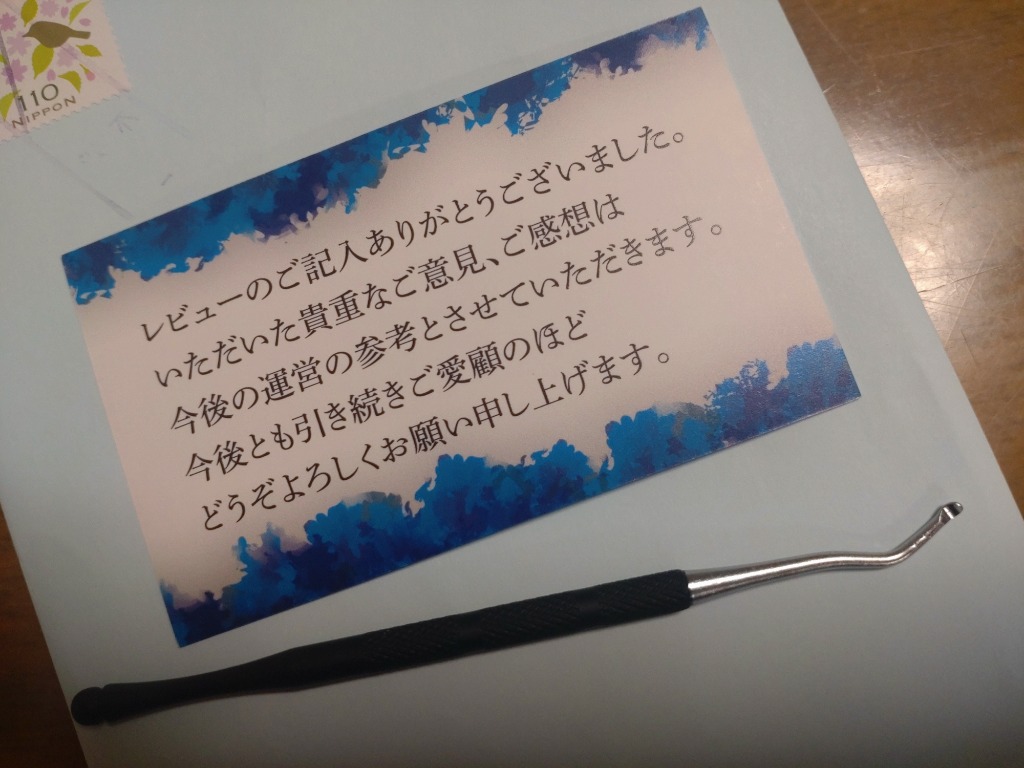 110
NIPPON
レビューのご記入ありがとうございました。
いただいた貴重なご意見、ご感想は
今後の運営の参考とさせていただきます。
今後とも引き続きご愛顧のほど
どうぞよろしくお願い申し上げます。